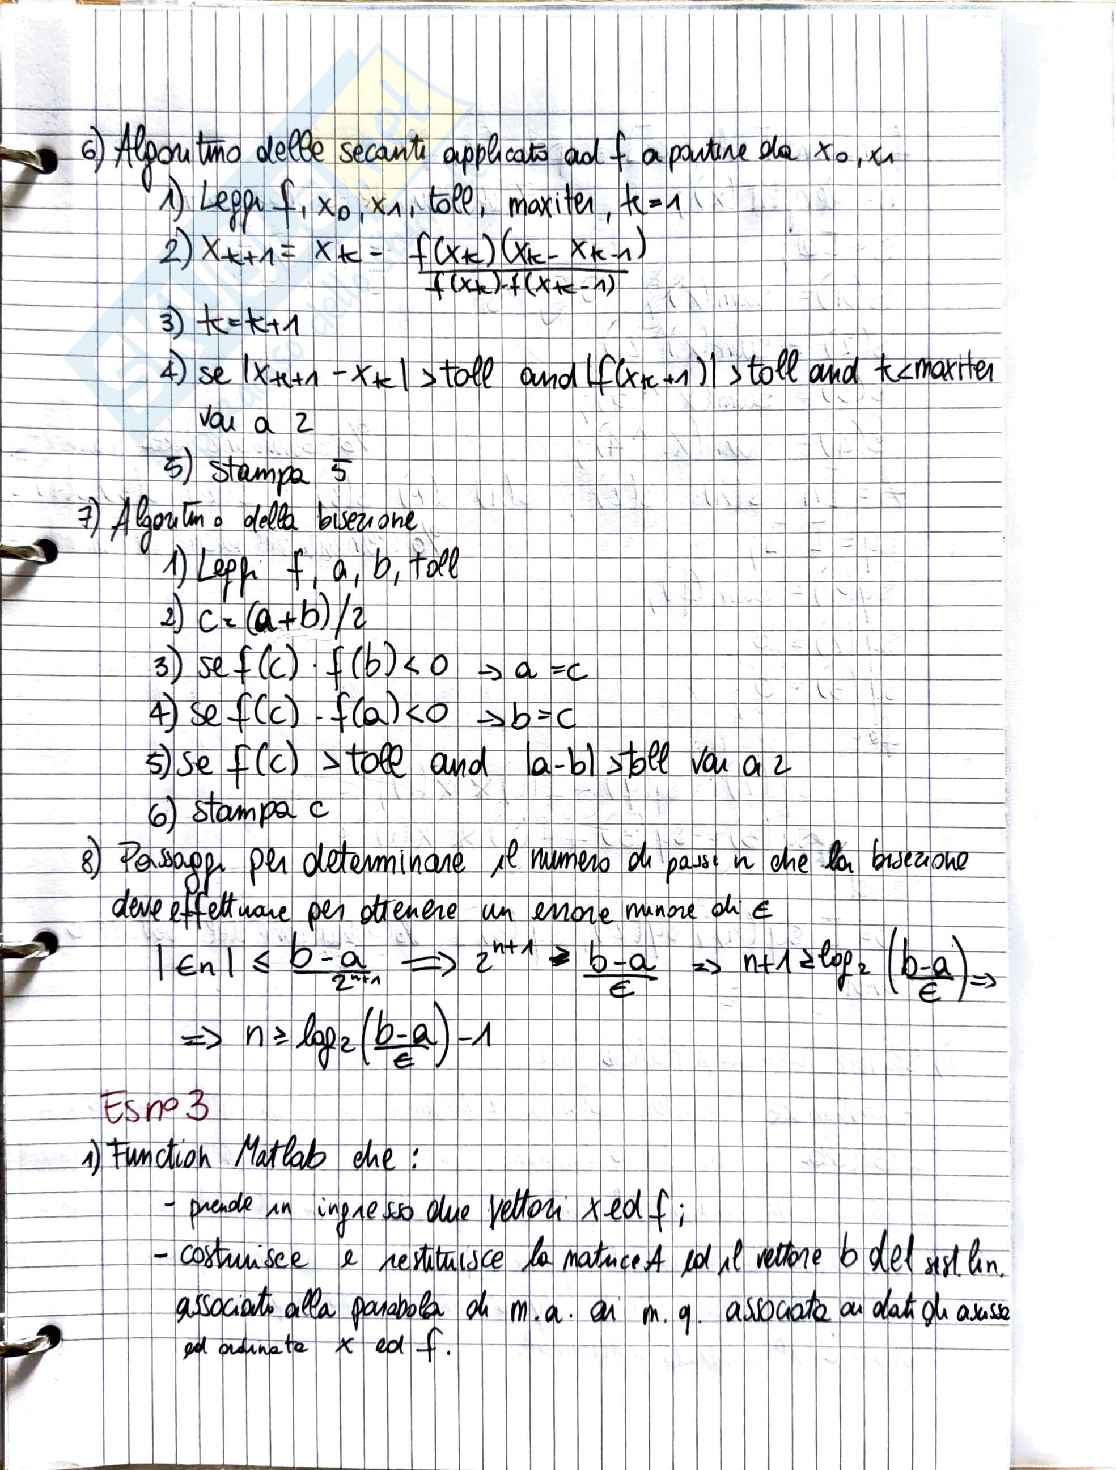 6) Algoritmo delle secanti applicato ad f a partire da x₀, x₁
1) Leggi f, x₀, x₁, toll, maxiter, k=1
2) x_{k+1} = x_k - \frac{f(x_k)(x_k - x_{k-1})}{f(x_k)-f(x_{k-1})}
3) k=k+1
4) se |x_{k+1} - x_k| > toll and |f(x_{k+1})| > toll and k<maxiter
vai a 2
5) stampa 5
7) Algoritmo della bisezione
1) Leggi f, a, b, toll
2) c=(a+b)/2
3) se f(c) · f(b)<0 → a=c
4) se f(c) · f(a)<0 → b=c
5) se f(c) > toll and |a-b| > toll vai a 2
6) stampa c
8) Passaggi per determinare il numero di passi n che la bisezione
deve effettuare per ottenere un errore minore di ϵ
|ϵn| ≤ \frac{b-a}{2^{n+1}} ⇒ 2^{n+1} ≥ \frac{b-a}{ϵ} ⇒ n+1 ≥ log₂(\frac{b-a}{ϵ}) ⇒
⇒ n ≥ log₂(\frac{b-a}{ϵ}) -1
Es n° 3
1) Function Matlab che:
- prende in ingresso due vettori x ed f;
- costruisce e restituisce la matrice A ed il vettore b del sist lin.
associato alla parabola di m.a. ai m.q. associata ai dati di ascissa
ed ordinata x ed f.